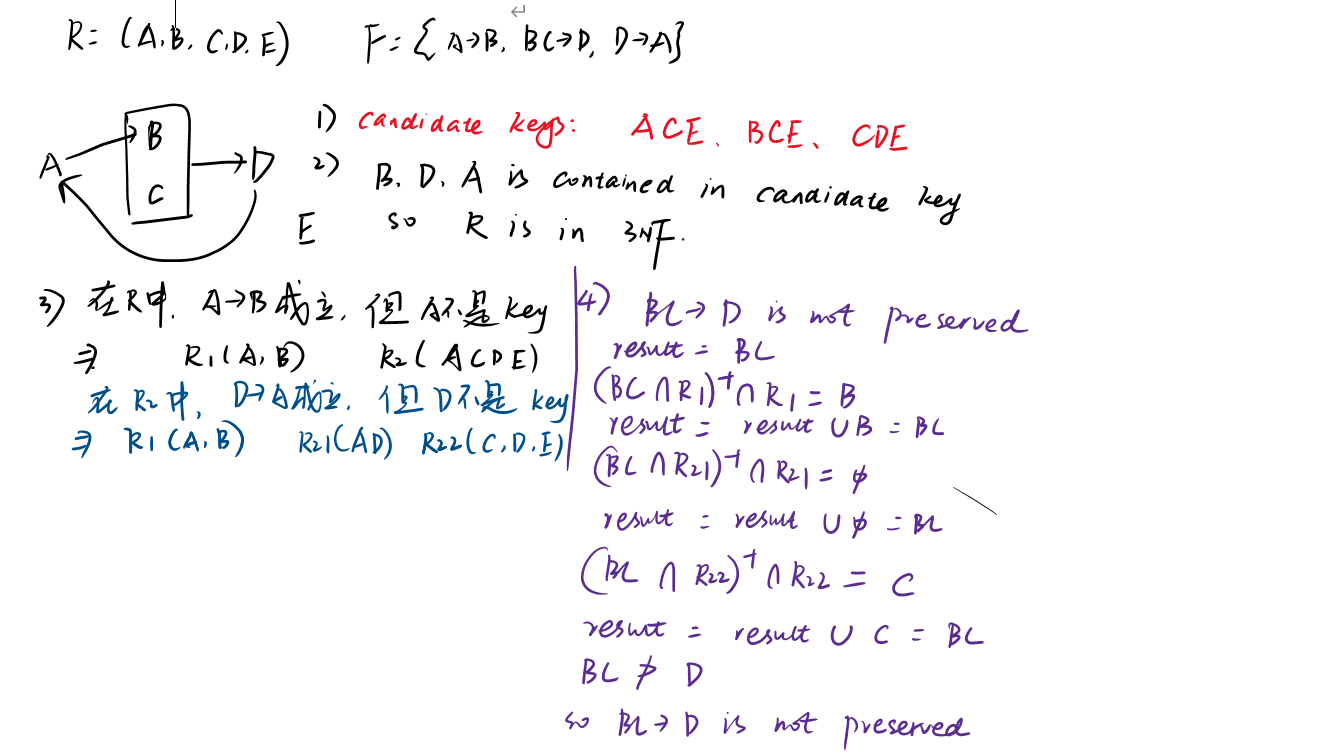 R= (A,B, C,D, E) F= { A→B, BC→D, D→A}
A B C D E
1) candidate keys: ACE、BCE、CDE
2) B. D. A is contained in candidate key
so R is in 3NF.
3) 在R中, A→B成立, 但A不是key
⇒ R1(A,B) R2( ACDE)
在R2中, D→A成立, 但D不是key
⇒ R1(A,B) R21(AD) R22(C,D,E)
4) BC→D is not preserved
result = BC
(BC∩R1)⁺∩R1 = B
result = result ∪B = BC
(BC∩R21)⁺∩R21 = ϕ
result = result ∪ϕ = BC
(BC ∩ R22)⁺∩R22 = C
result = result ∪ C = BC
BC ⊅ D
so BC→D is not preserved